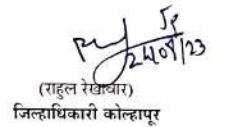 24/08/23
(राहुल रेखावार)
जिल्हाधिकारी कोल्हापूर